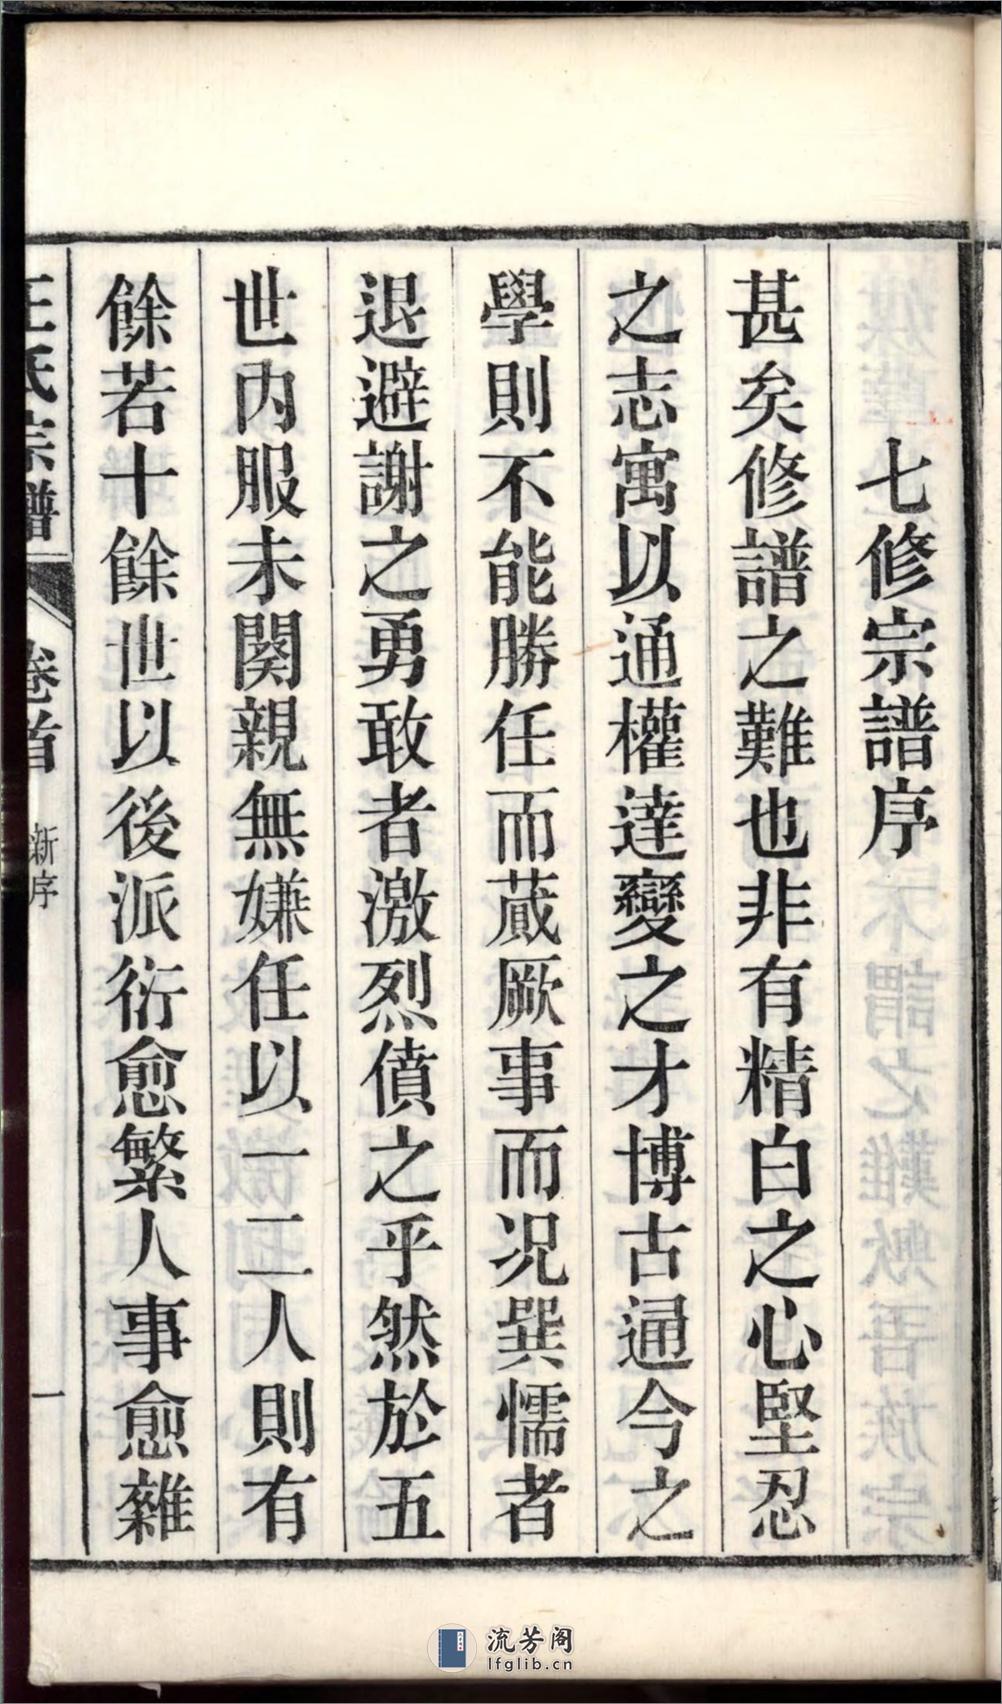 七修宗譜序
甚矣修譜之難也非有精白之心堅忍
之志寓以通權達變之才博古通今之
學則不能勝任而蕆厥事而况巽懦者
退避謝之勇敢者激烈僨之乎然於五
世內服未闋親無嫌任以一二人則有
餘若十餘世以後派衍愈繁人事愈雜
氏宗譜
卷首
新序
一
流芳阁
lfglib.cn